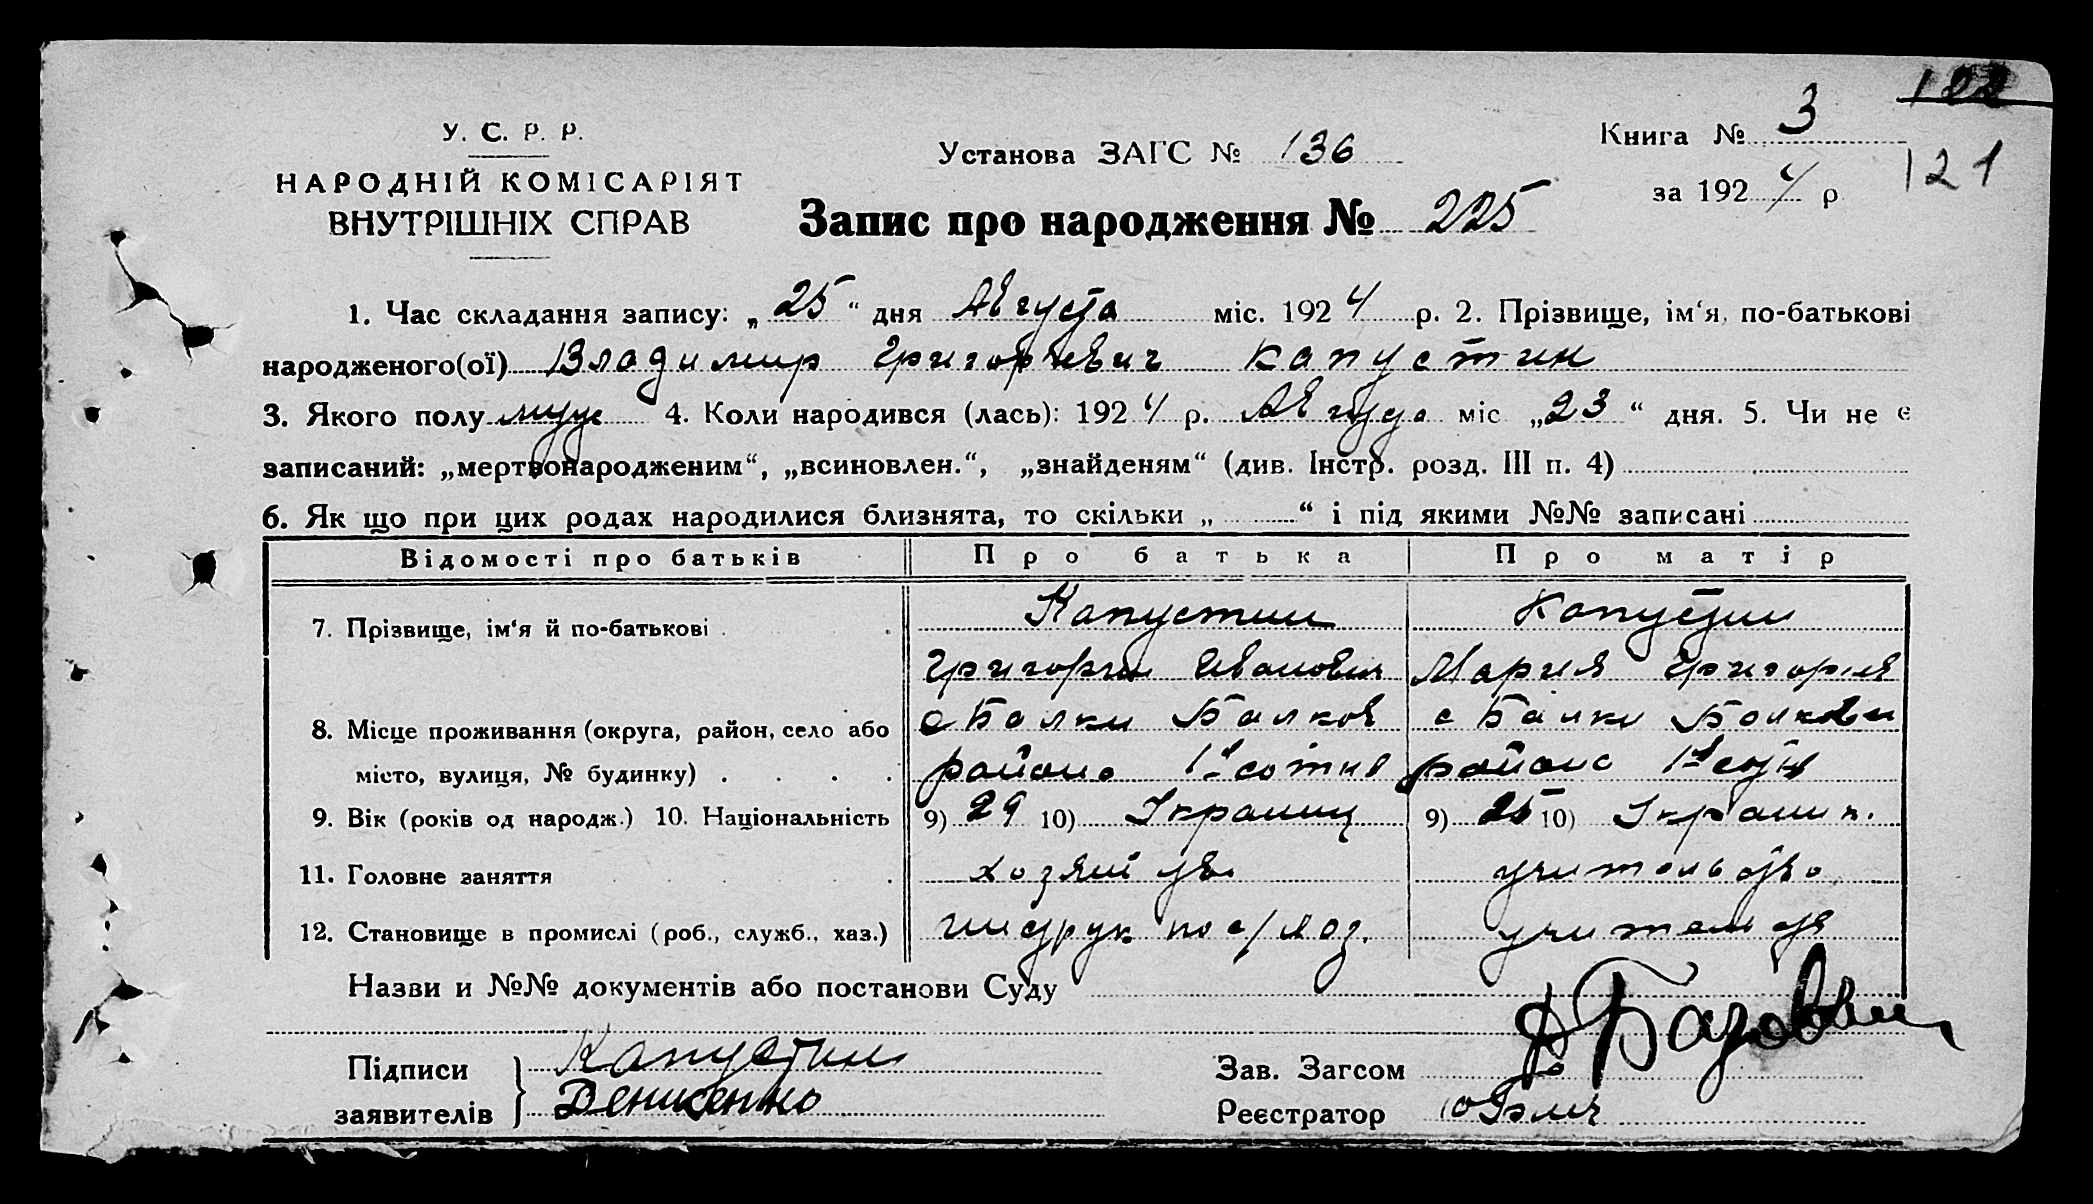 122
У. С. Р. Р.
НАРОДНІЙ КОМІСАРІЯТ
ВНУТРІШНІХ СПРАВ
Установа ЗАГС № 136
Книга № 3
за 1924 р
121
Запис про народження № 225
1. Час складання запису: „25“ дня Августа міс. 1924 р. 2. Прізвище, ім‘я, по-батькові
народженого(ої) Владимир Григорьевич Капустин
3. Якого полу муж 4. Коли народився (лась): 1924 р. Августа міс „23“ дня. 5. Чи не є
записаний: „мертвонародженим“, „всиновлен.“, „знайденям“ (див. Інстр. розд. III п. 4)
6. Як що при цих родах народилися близнята, то скільки „ “ і під якими №№ записані
Відомості про батьків Про батька Про матір
7. Прізвище, ім‘я й по-батькові Капустин Капустин
Григорий Иванович Мария Григорьев
8. Місце проживання (округа, район, село або с Балки Балков с Балки Балков
місто, вулиця, № будинку) района 1я сотня района 1я сотня
9. Вік (років од народж.) 10. Національність 9) 29 10) Украинц 9) 25 10) Украин.
11. Головне заняття хозяйств учительство
12. Становище в промислі (роб., служб., хаз.) хоз.
Назви и №№ документів або постанови Суду
Підписи заявителів Капустин
Зав. Загсом
Реєстратор